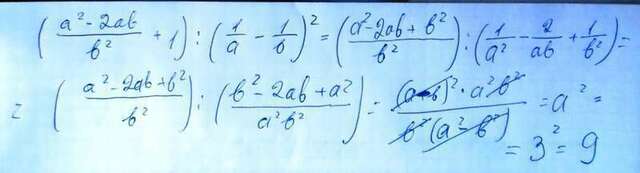 ( (a² - 2ab)/b² + 1 ) : ( 1/a - 1/b )² = ( (a² - 2ab + b²)/b² ) : ( 1/a² - 2/ab + 1/b² ) =
= ( (a² - 2ab + b²)/b² ) : ( (b² - 2ab + a²)/a²b² ) = ((a-b)² · a²b²)/(b²(a² - b²)) = a² =
= 3² = 9